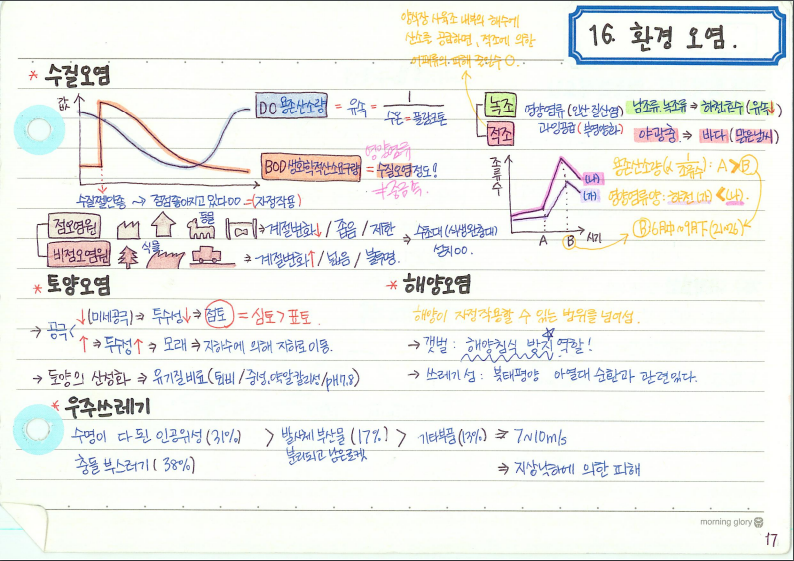 16. 환경 오염.
양식장 사육조 내부의 해수에
산소를 공급하면, 적조에 의한
어패류의 피해 줄일수 O.
* 수질오염
값
DO 용존산소량 = 유속 = 1 / 수온 = 플랑크톤
BOD 생화학적산소요구량 = 수질오염정도!
영양염류
≠ 중금속.
수질깨끗한물 → 점점좋아지고있다00 = (자정작용)
녹조
적조
영양염류 (인산 질산염)
과잉공급 (부영양화)
남조류, 녹조류 → 하천, 호수 (유속↓)
야광충 → 바다
조류수
(나)
(가)
A
B
시기
용존산소량 (∝ 1/조류수) : A > B
영양염류양: (가) < (나).
B 6月中~9月下 (21~26)
점오염원
동물
⇒ 계절변화↓ / 좁음 / 제한
비점오염원
식물
⇒ 계절변화↑ / 넓음 / 불투명.
⇒ 수초대 (식생완충대)
설치00.
* 토양오염
→ 공극
↓ (미세공극) ⇒ 투수성↓ ⇒ 점토 = 심토 > 표토.
↑ ⇒ 투수성↑ ⇒ 모래 → 지하수에 의해 지하로 이동.
→ 토양의 산성화 ⇒ 유기질비료 (퇴비 / 중성, 약알칼리성 / pH 7,8)
* 해양오염
해양이 자정작용할 수 있는 범위를 넘어섬.
→ 갯벌 : 해양침식 방지 역할!
→ 쓰레기 섬 : 북태평양 아열대 순환과 관련있다.
* 우주쓰레기
수명이 다 된 인공위성 (31%) > 발사체 부산물 (17%) > 기타부품 (13%) ⇒ 7~10m/s
분리되고 남은로켓
충돌 부스러기 (38%)
⇒ 지상낙하에 의한 피해
morning glory
17